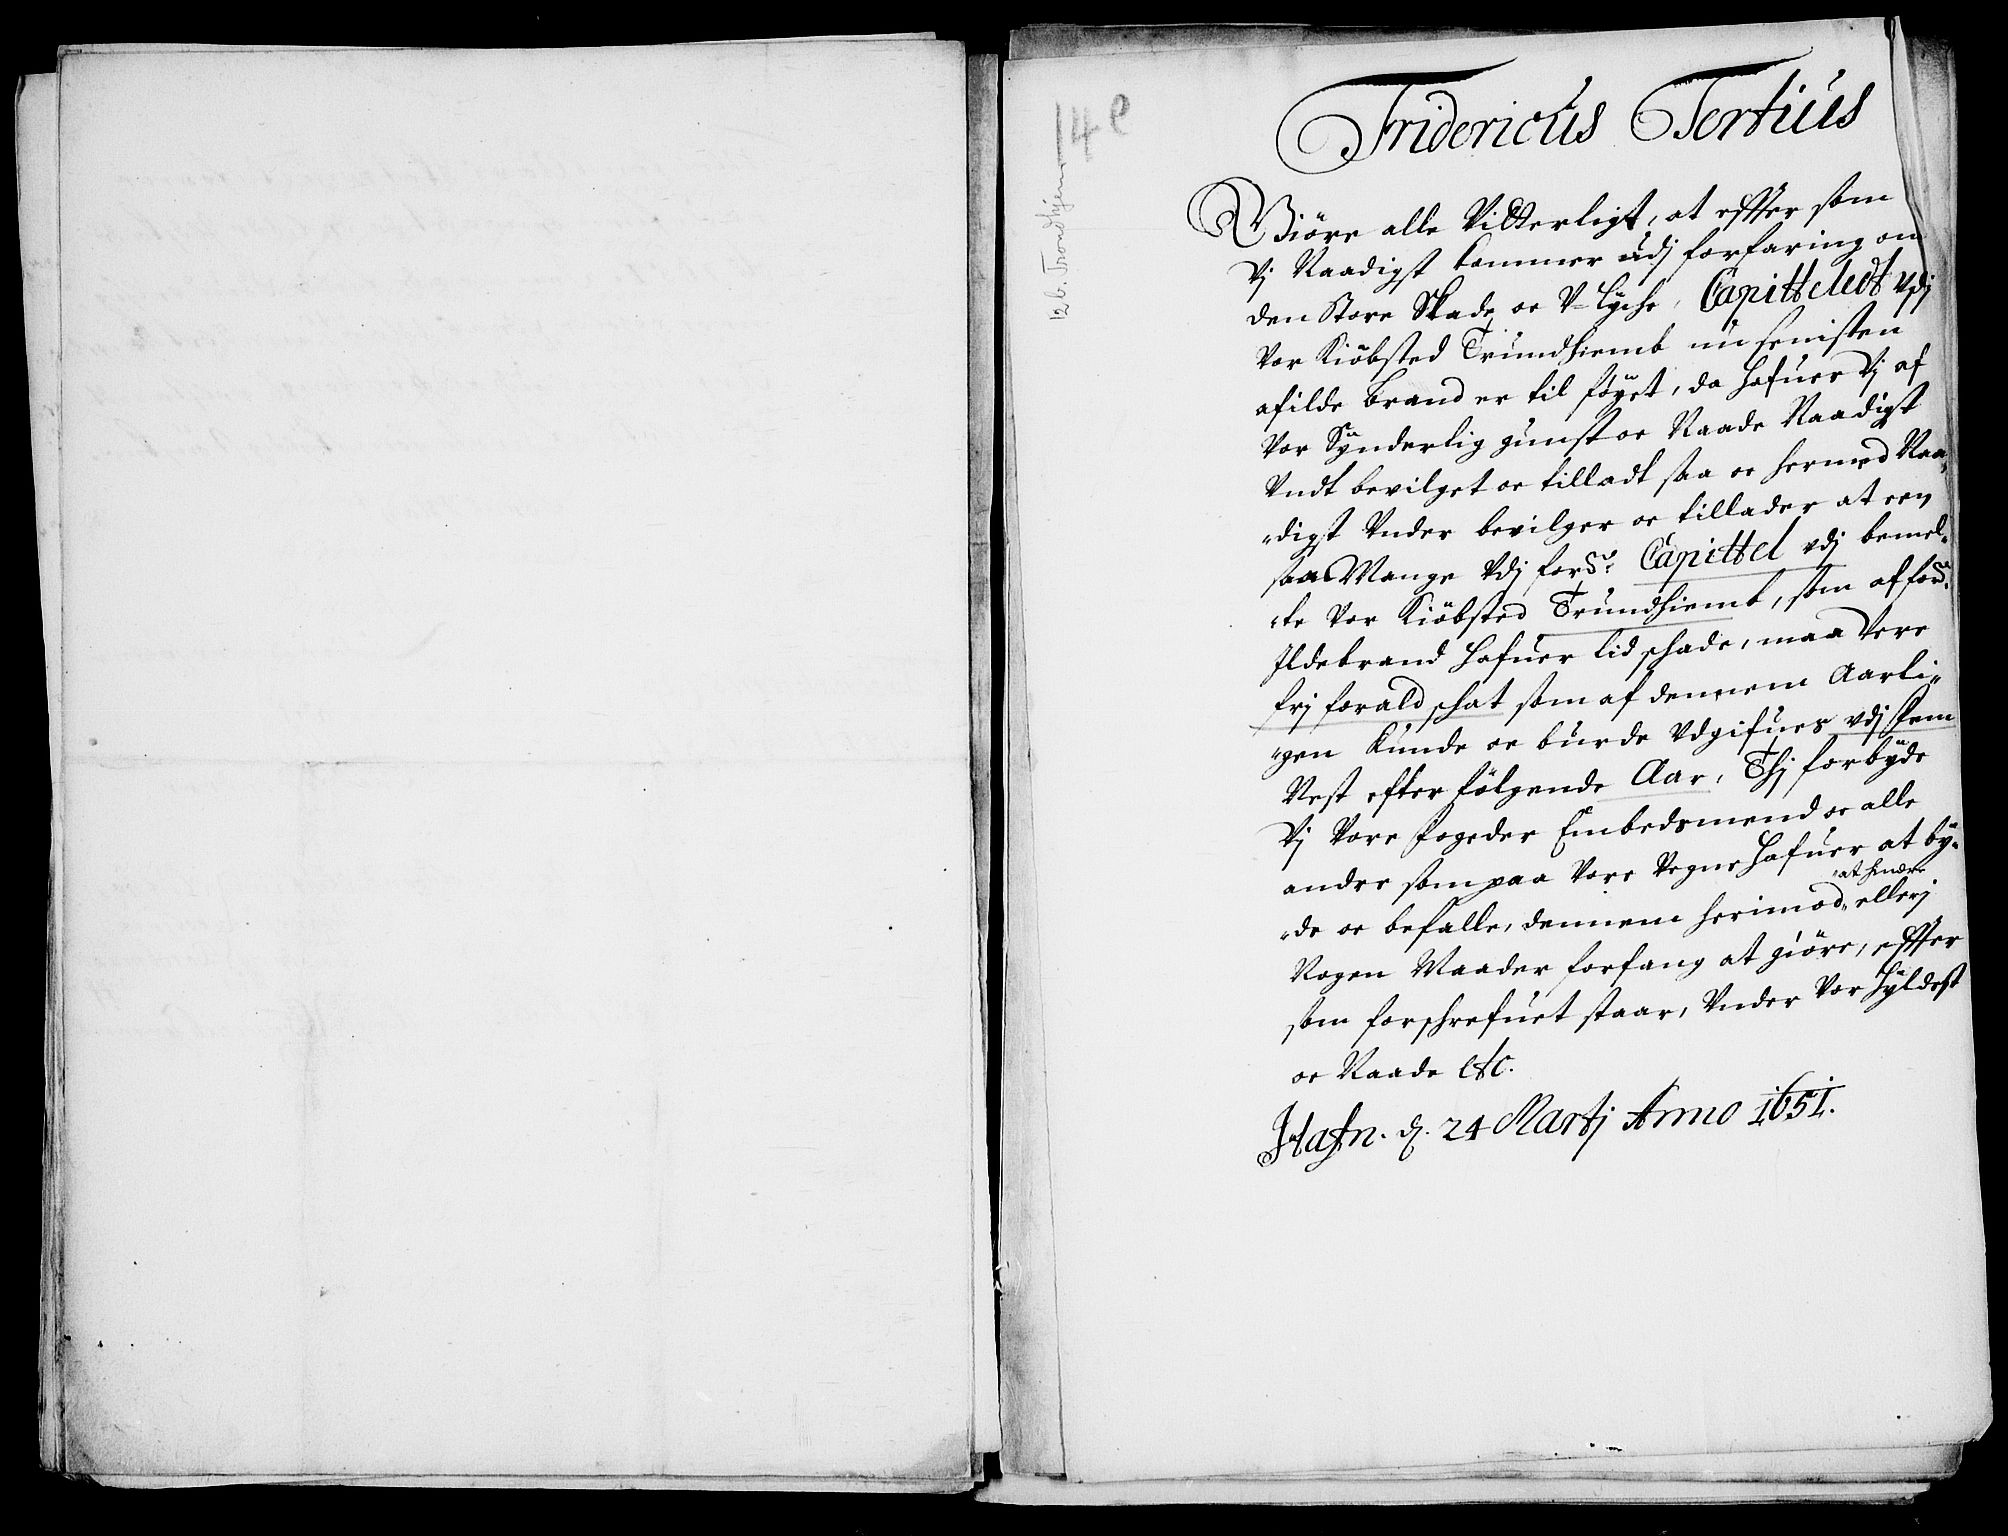 14 e
12 b. Trondhjem
Fridericus Tertius
Giöre alle Vitterligt, at efftter som
Vj Naadigst kommer udj forfaring om
den Store Skade oc V-lyche, Capitteledt vdj
Vor Kiöbsted Trundhiemb nu senisten
afilde brand er til föyet, da hafuer Vj af
Vor Synderlig gunst oc Naade Naadigst
Vndt bevilget oc tilladt saa oc hermed Naa„
„digst Vnder bevilger oc tillader at een
saa Mange Vdj fors: Capittel vdj bemel„
„te Vor Kiöbsted Trundhiemb, som af fors:
Ildebrand hafuer lid schade, maa Vere
frj forald schat som af dennem Aarli„
„gen Kunde oc burde Vdgifues vdj fem
Nest efter fölgende Aar, Thj forbyde
Vj Vore fogeder Embedsmend oc alle
andre som paa Vore Vegne hafuer at by„
„at hindre
„de oc befalle, dennem herimod„ ellerj
Nogen Maader forfang at giöre, effter
som forschrefuet staar, Vnder Vor Hyldest
oc Naade etc.
Hafn. d. 24 Martj Anno 1651.